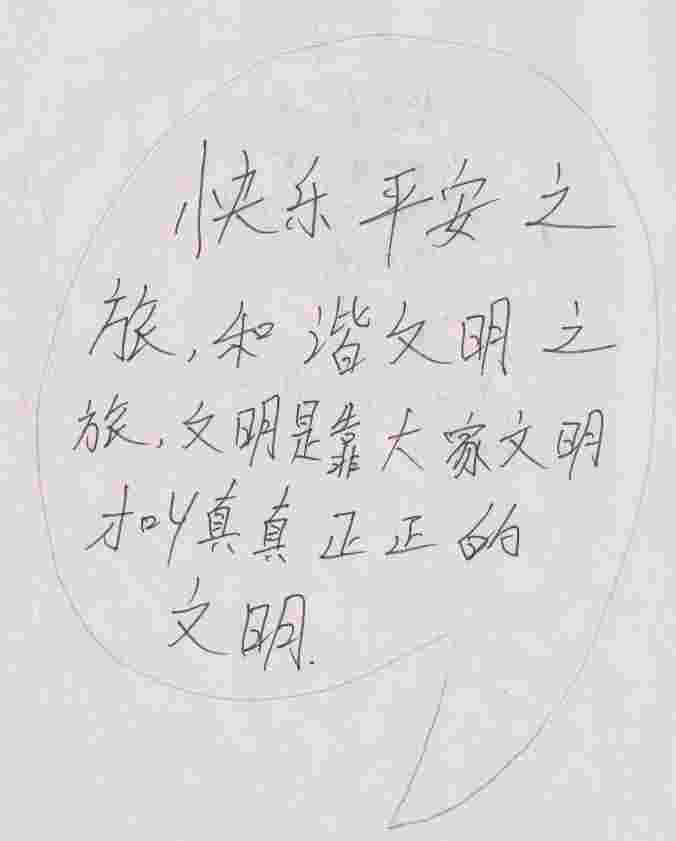 快乐平安之
旅,和谐文明之
旅,文明是靠大家文明
才叫真真正正的
文明.